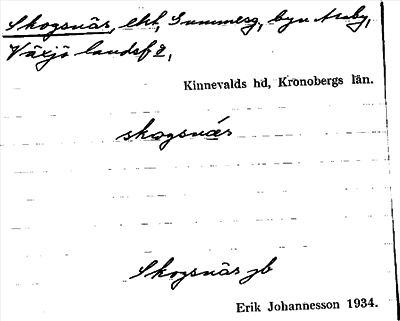 Skogsnäs, lht, Gummesg, byn Araby,
Växjö landsf 2,
Kinnevalds hd, Kronobergs län.
skogsnä́s
Skogsnäs jb
Erik Johannesson 1934.